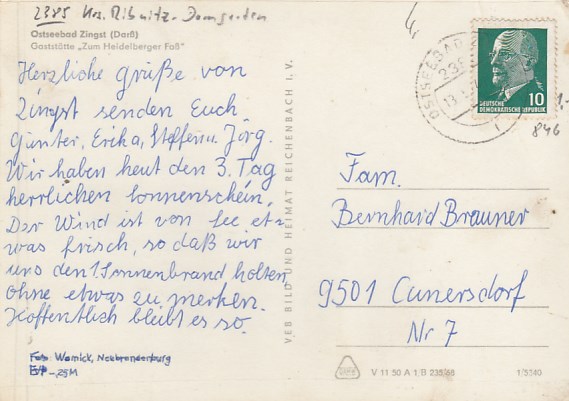 2385 Krs. Ribnitz-Damgarten
Ostseebad Zingst (Darß)
Gaststätte „Zum Heidelberger Faß"
Herzliche grüße von
Zingst senden Euch
Günter, Erika, Steffen u. Jörg.
Wir haben heut den 3. Tag
herrlichen Sonnenschein.
Der Wind ist von See et=
was frisch, so daß wir
uns den 1 Sonnenbrand holten
ohne etwas zu merken.
Hoffentlich bleibt es so.
Foto: Warnick, Neubrandenburg
-25M
VEB BILD UND HEIMAT REICHENBACH I. V.
OSTSEEBAD
10
DEUTSCHE
DEMOKRATISCHE REPUBLIK
1,-
846
Fam.
Bernhard Brauner
9501 Cunersdorf
Nr 7
V 11 50 A 1 B 235/68
1/5540